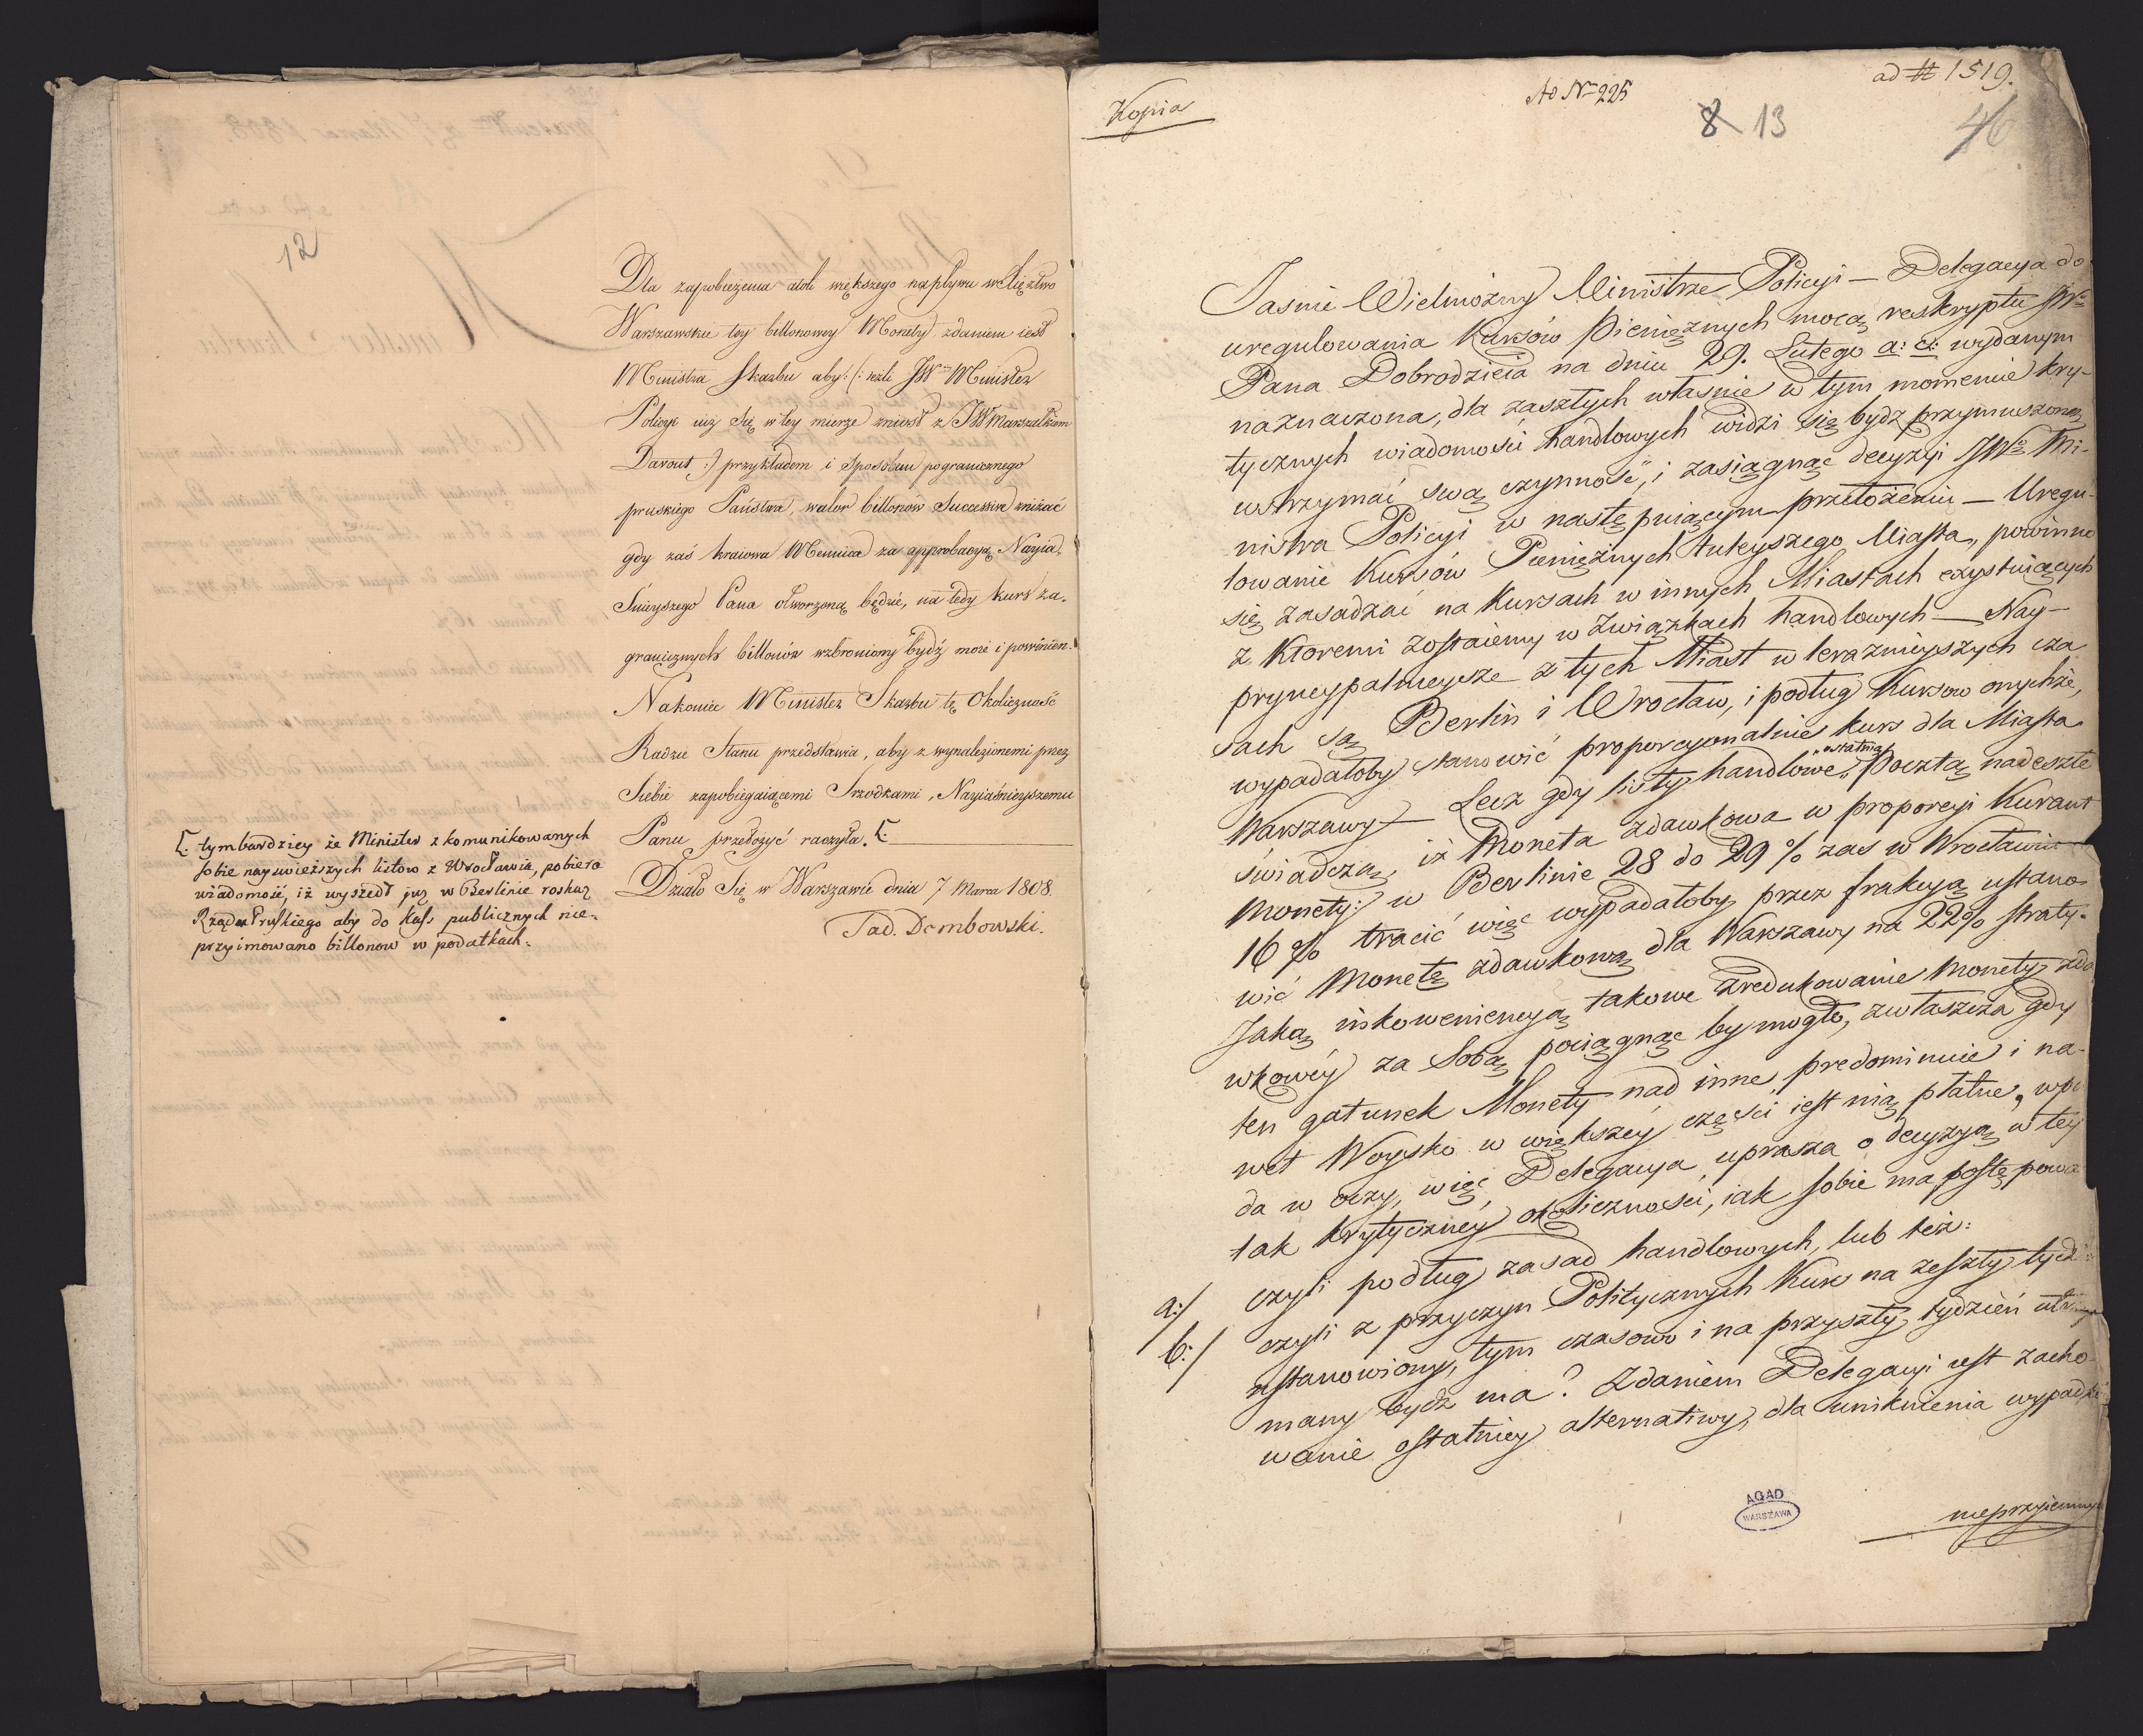 12
Dla zapobieżenia atoli większego napływu w Xięztwo
Warszawskie tey billonowey Monety zdaniem iest
Ministra Skarbu aby: (: ieżli JW Minister
Policyi iuż się w tey mierze zniosł z JW Marszałkiem
Davout :) przykładem i sposobem pogranicznego
pruskiego Państwa, walor billonów successive zniżać
gdy zaś kraiowa Mennica za approbacyą Nayia,
śnieyszego Pana otworzoną będzie, na tedy kurs za-
granicznych billonów wzbroniony bydź może i powinien.
Nakoniec Minister Skarbu tę Okoliczność
Radzie Stanu przedstawia, aby z wynalezionemi przez
Siebie zapobiegaiącemi Srzodkami, Nayiaśnieyszemu
Panu przełożyć raczyła. [:
Działo Się w Warszawie dnia 7 Marca 1808
Tad. Dembowski.
[: tymbardziey że Minister z komunikowanych
sobie nayswieższych listow z Wrocławia, pobiera
wiadomość, iż wyszedł juz w Berlinie roskaz
Rządu Pruskiego aby do Kass publicznych nie-
przyimowano billonow w podatkach.
Kopia
Ad Nr 225
ad # 1519.
8 13
46
Jasnie Wielmożny Ministrze Policyi — Delegacya do
uregulowania Kursów Pieniężnych mocą reskryptu JWo
Pana Dobrodzieia na dniu 29. Lutego a: c: wydanym
naznaczona, dla zaszłych własnie w tym momencie kry-
tycznych wiadomości handlowych widzi się bydz przymuszoną
wstrzymać swą czynność, i zasiągnąć decyzyi JWo Mi-
nistra Policyi w następuiącym przełożeniu — Uregu-
lowanie Kursów Pieniężnych tuteyszego Miasta, powinno
się zasadzać na Kursach w innych Miastach exystuiących
z Ktoremi zostaiemy w związkach handlowych — Nay-
pryncypalnieysze z tych Miast w teraznieyszych cza
sach są Berlin i Wrocław, i podług Kursow onychże,
wypadałoby stanowić proporcyonalnie kurs dla Miasta
Warszawy — Lecz gdy listy handlowe „ostatnią" Pocztą nadeszłe
świadczą, iż Moneta zdawkowa w proporcyi Kurant
Monety: w Berlinie 28 do 29 % zas w Wrocławiu
16 % tracić więc wypadałoby przez frakcyą ustano-
wić Monetę zdawkową dla Warszawy na 22% straty.
Jaką inkoweniencyą takowe zredukowanie Monety zda
wkowéy za Sobą pociągnąć by mogło, zwłaszcza gdy
ten gatunek Monety nad inne predominuie i na-
wet Woysko w większéy części iest nią płatne, wpa
da w oczy, więc Delegacya uprasza o decyzyą w tey
tak krytyczney okoliczności, iak sobie ma postępowa
a:/ czyli podług zasad handlowych, lub też:
b:/ czyli z przyczyn Politycznych Kurs na zeszły tydz
ustanowiony, tym czasowo i na przyszły tydzień utrzy
many bydz ma? Zdaniem Delegacyi iest zacho-
wanie ostatniey alternatiwy, dla uniknienia wypadk
nieprzyiemnych
AGAD
WARSZAWA